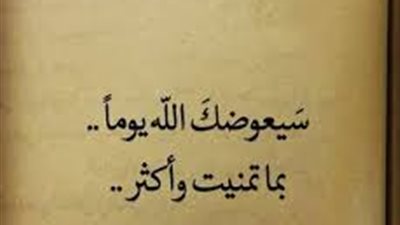 سَيعوضكَ الله يوماً ..
بما تمنيت وأكثر ..